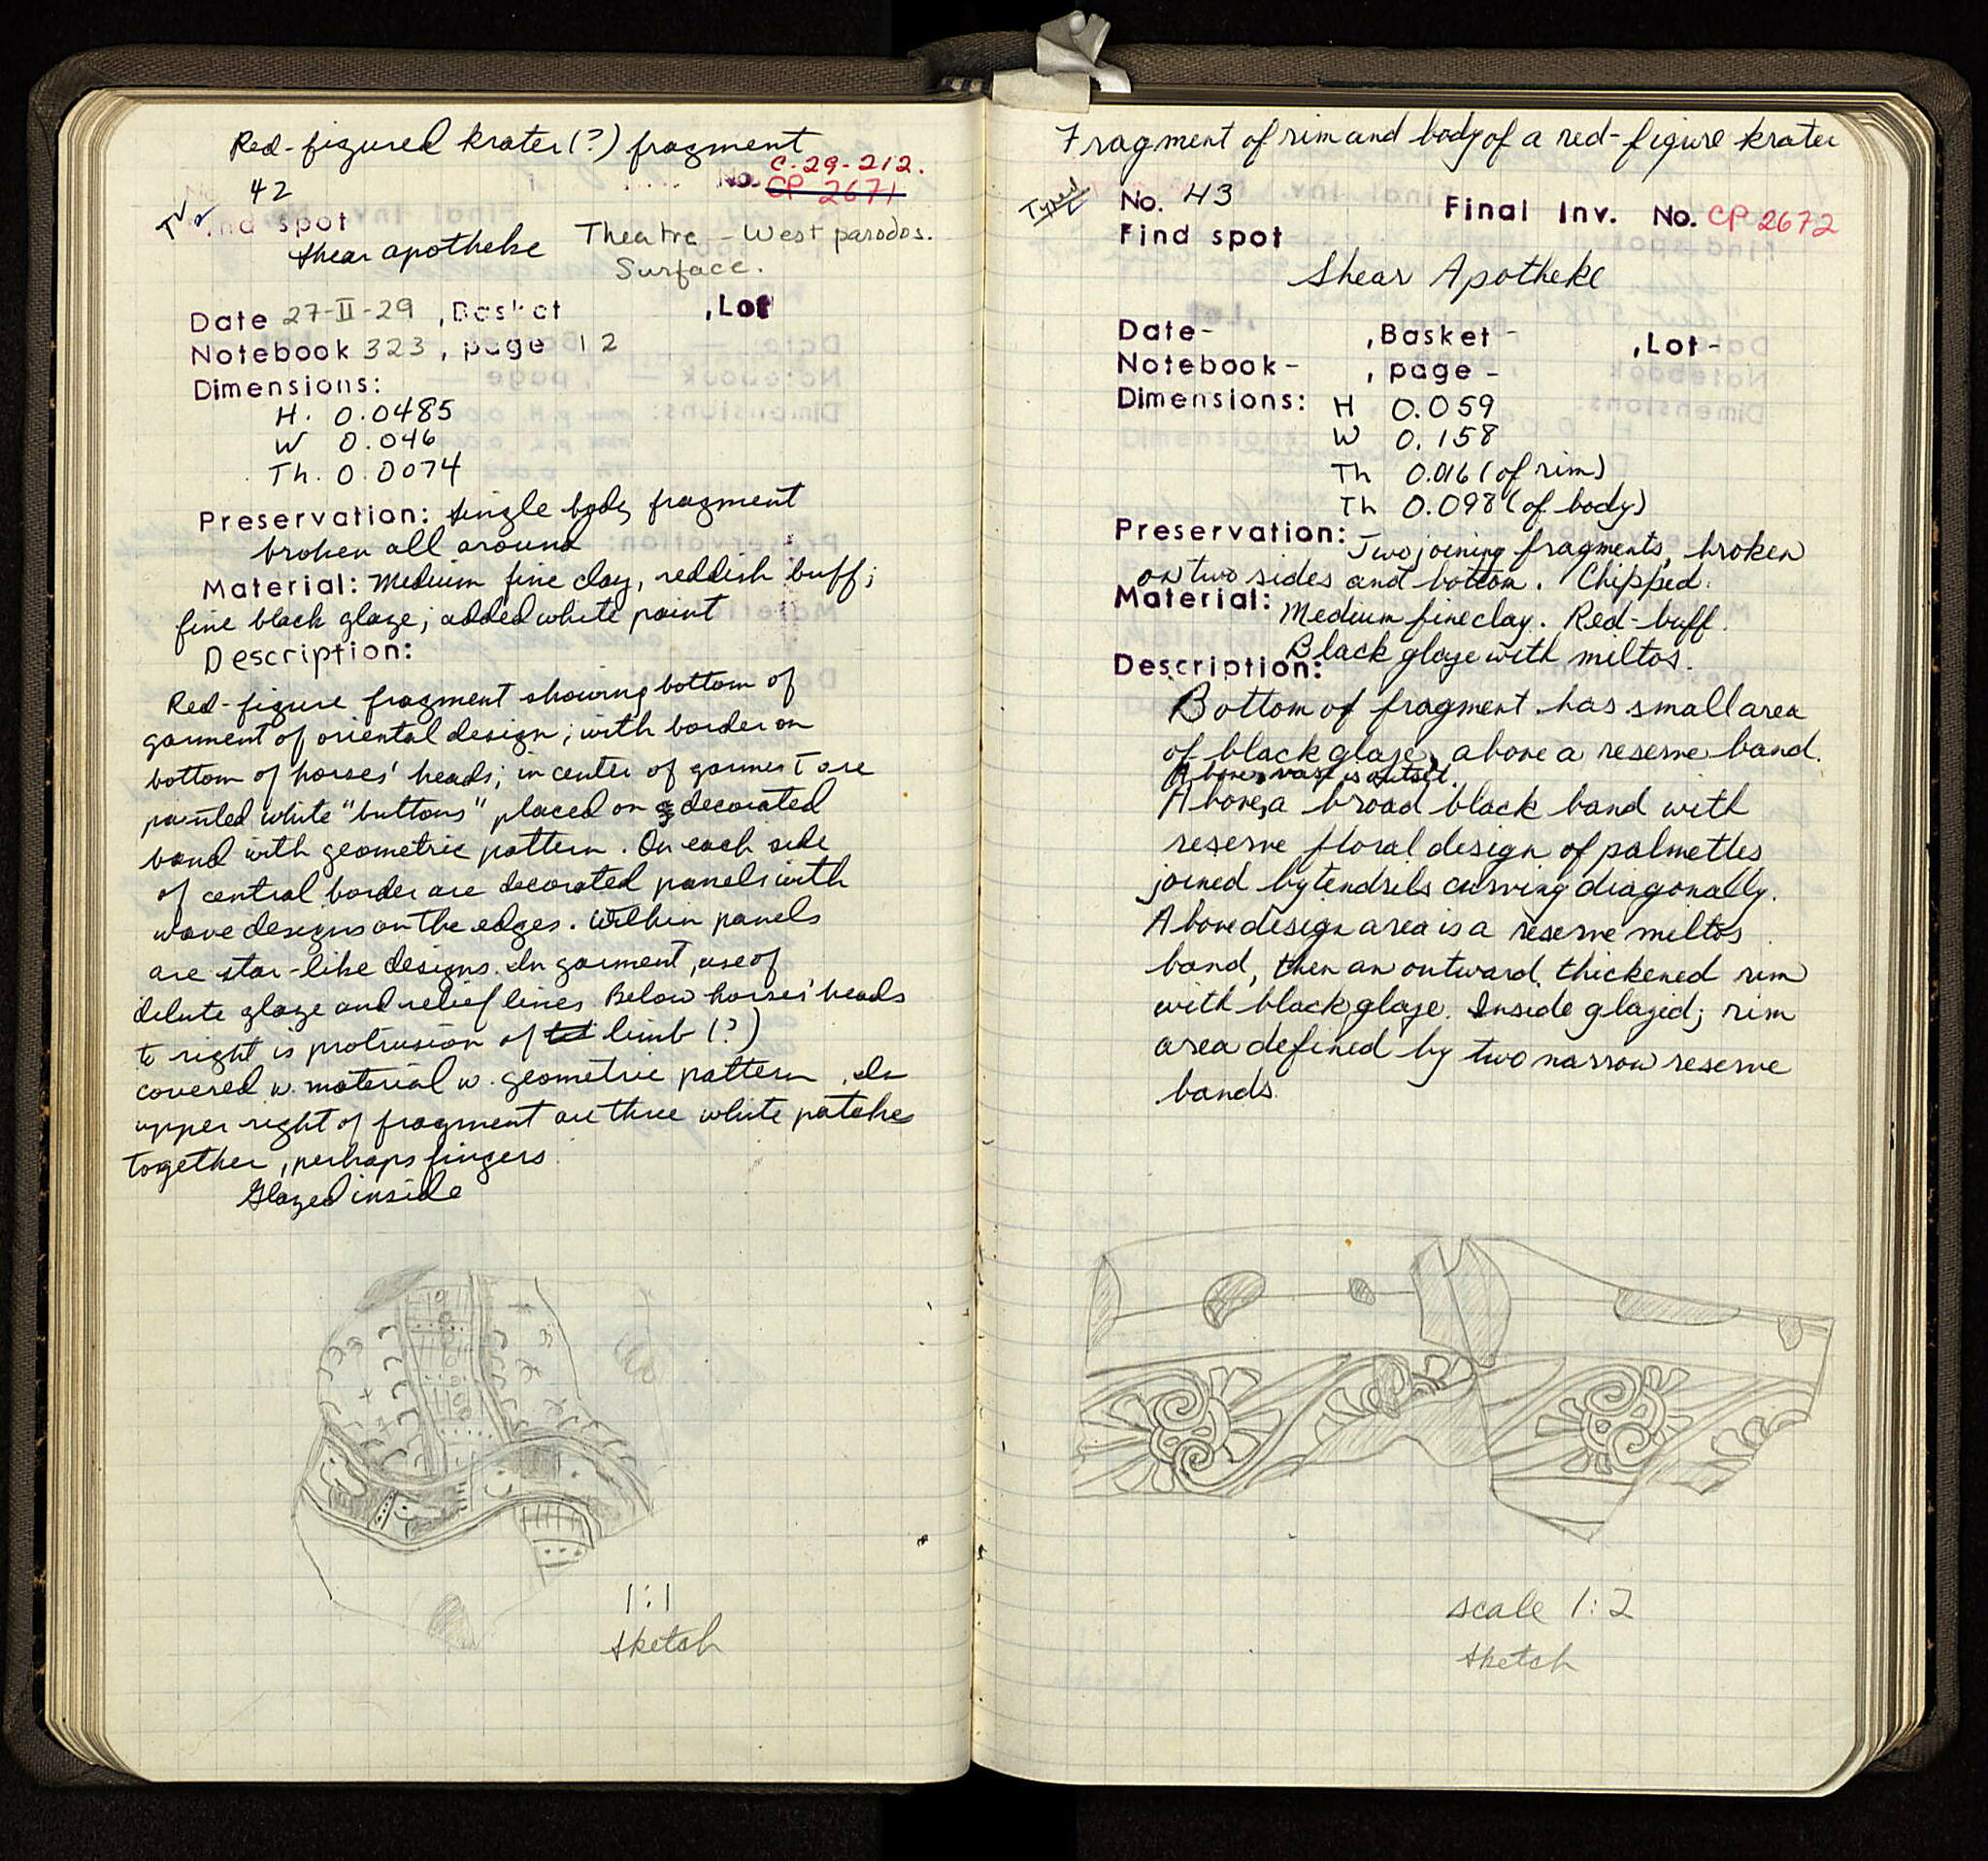 Red-figured krater (?) fragment
C-29-212.
42 No. CP 2671
Find spot
Shear apotheke Theatre - West parodos.
Surface.
Date 27-II-29 , Basket , Lot
Notebook 323 , page 12
Dimensions:
H. 0.0485
W 0.046
Th. 0.0074
Preservation: single body fragment
broken all around
Material: Medium fine clay, reddish buff;
fine black glaze; added white paint
Description:
Red-figure fragment showing bottom of
garment of oriental design; with border on
bottom of horses' heads; in center of garment are
painted white "buttons" placed on decorated
band with geometric pattern. On each side
of central border are decorated panels with
wave designs on the edges. Within panels
are star-like designs. In garment, use of
dilute glaze and relief lines Below horses' heads
to right is protrusion of limb (?)
covered w. material w. geometric pattern. In
upper right of fragment are three white patches
together, perhaps fingers
Glazed inside
1:1
sketch
Fragment of rim and body of a red-figure krater
Typed
No. 43 Final Inv. No. CP 2672
Find spot
Shear Apotheke
Date- , Basket - , Lot -
Notebook - , page -
Dimensions: H 0.059
W 0.158
Th 0.016 (of rim)
Th 0.098 (of body)
Preservation: Two joining fragments, broken
on two sides and bottom. Chipped.
Material: Medium fine clay. Red-buff.
Black glaze with miltos.
Description:
Bottom of fragment has small area
of black glaze, above a reserve band.
Above, vase is offset.
Above, a broad black band with
reserve floral design of palmettes
joined by tendrils curving diagonally.
Above design area is a reserve miltos
band, then an outward thickened rim
with black glaze. Inside glazed; rim
area defined by two narrow reserve
bands.
scale 1:2
sketch